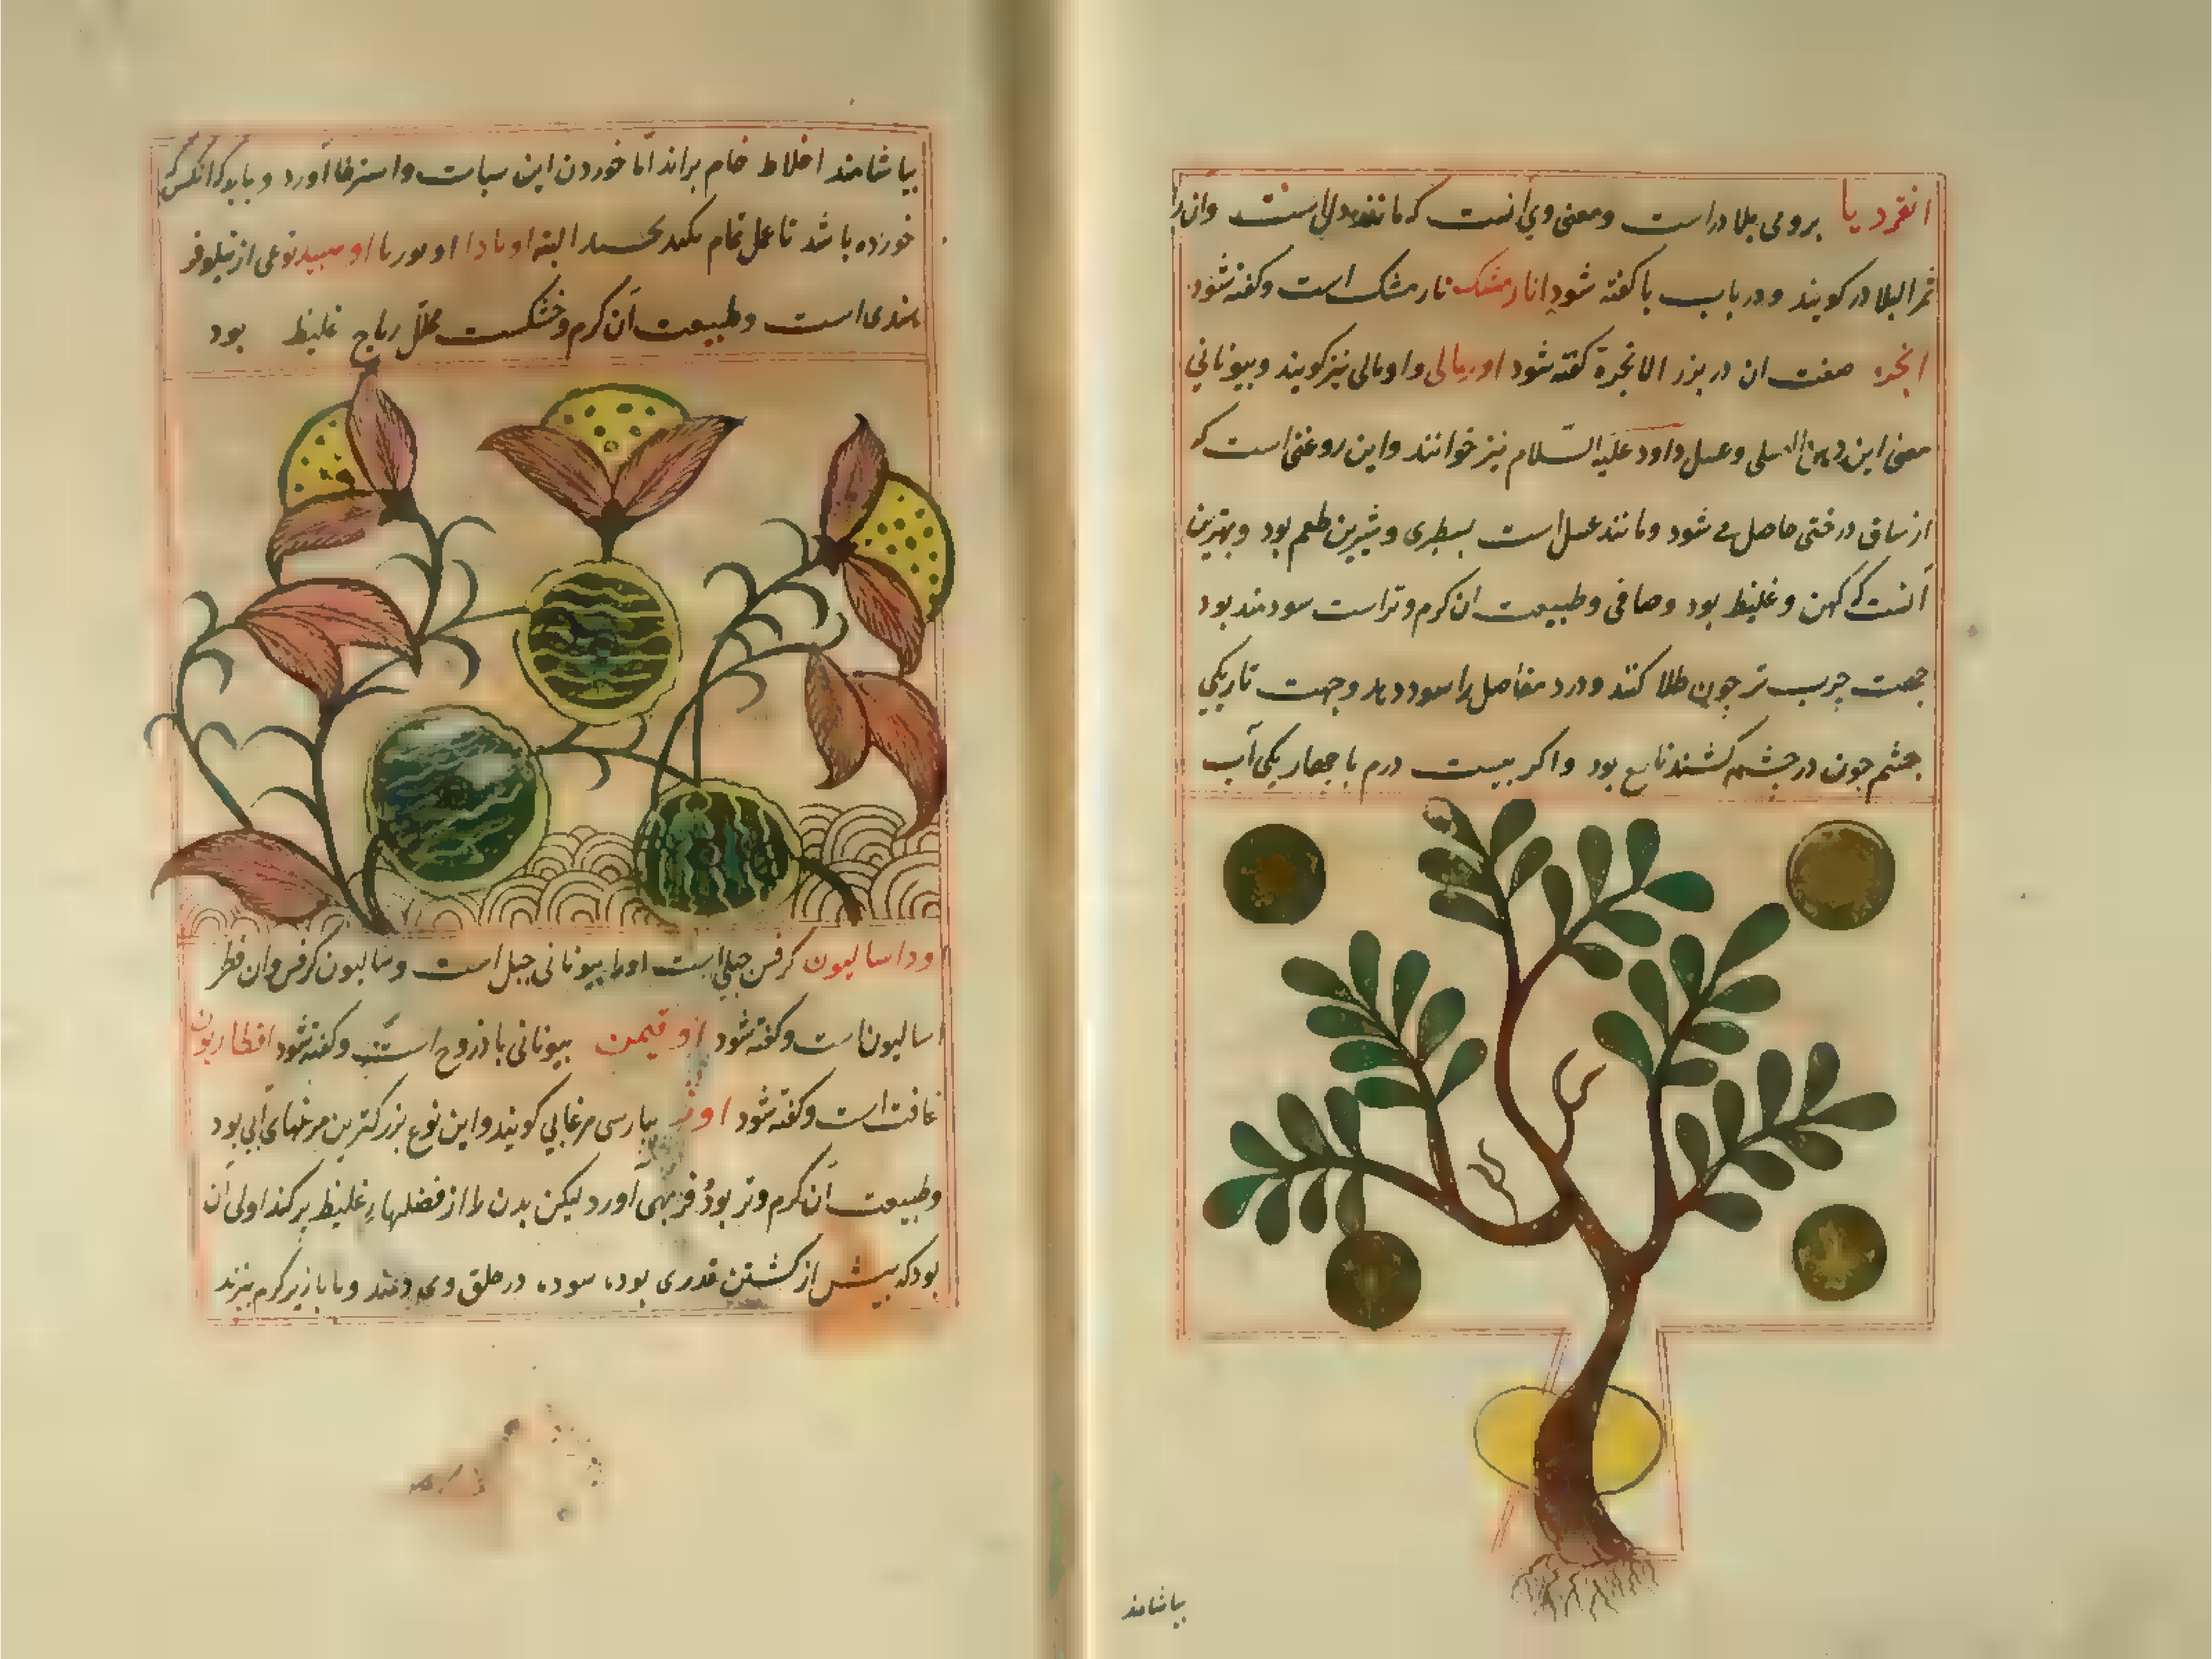 انقردیا برومی بلادراست ومعنی وی آنست که مانند دل است وان را
ثمر البلادر کویند ودر باب با کفته شود انار مشک نار مشک است وکفته شود
انجره صفت ان در بزر الانجرة کفته شود اورمالی واومالی نیز کویند وبیونانی
معنی این دهن العسلی وعسل داود علیه السّلام نیز خوانند واین روغنی است که
از ساق درختی حاصل می شود ومانند عسل است بسطبری وشیرین طعم بود وبهترین
آنست که کهن وغلیظ بود وصافی وطبیعت ان کرم وتر است سودمند بود
جهت جرب تر چون طلا کنند ودرد مفاصل را سود دهد وجهت تاریکی
جشم جون در جشم کشند نافع بود واکر بیست درم با جهار یکی آب
بیاشامند
بیاشامند اخلاط خام براند امّا خوردن این سبات واسترخا آورد وباید که انکس که
خورده باشد تا عمل تمام نکند البته اوبادا او مورنا او سبید نوعی از نیلوفر
هندی است وطبیعت آن کرم وخشکست محلّل ریاح غلیظ بود
ورداسالیون کرفس جبلی است اورا بیونانی جبل است وسالیون کرفس وان فطر
اسالیون است وکفته شود اوقیمن بیونانی باذروج است وکفته شود افطاریون
غافت است وکفته شود اوز بپارسی مرغابی کویند واین نوع بزرکترین مرغهای آبی بود
وطبیعت آن کرم وتر بود فربهی آورد لیکن بدن را از فضلهاء غلیظ پر کند اولی آن
بود که بیش از کشتن قدری بوده سوده در حلق وی دمند وبا بازیر کرم بپزند